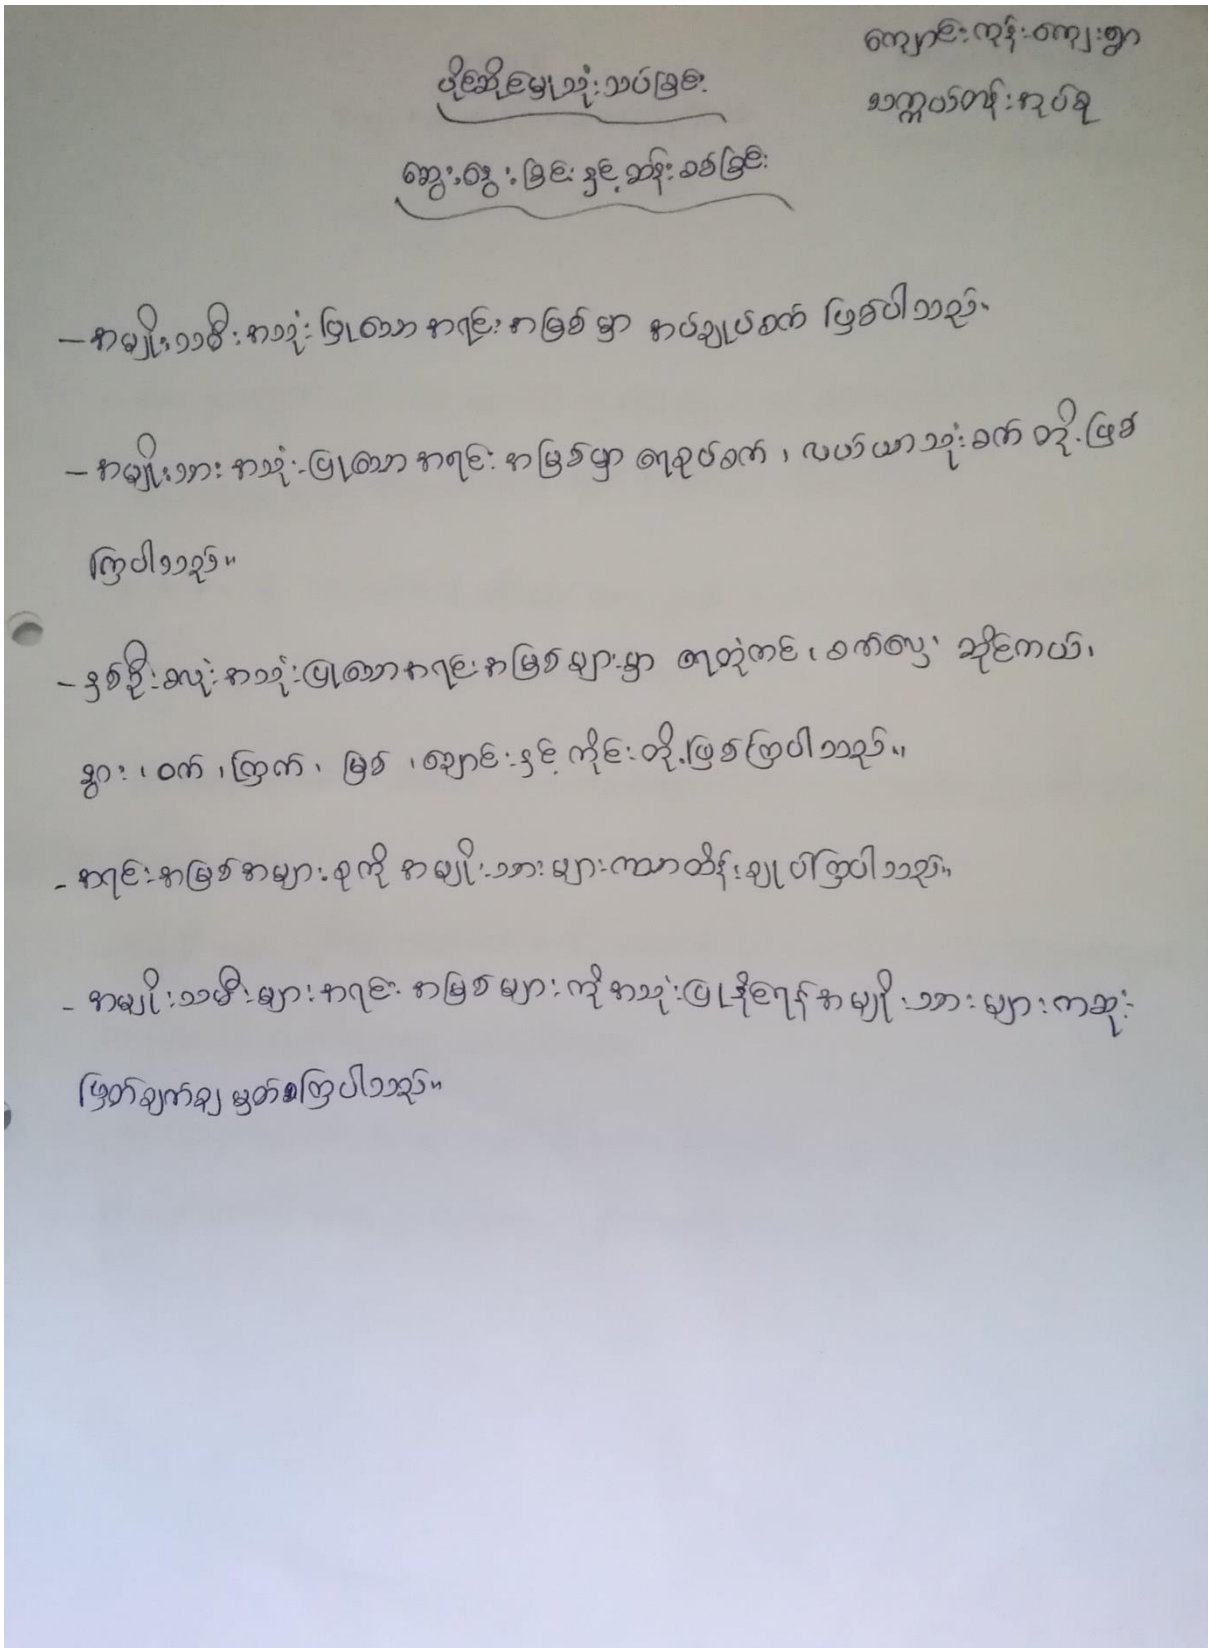 ကျောင်းကုန်းကျေးရွာ
သက္ကယ်တန်းအုပ်စု
ပိုင်ဆိုင်မှုသုံးသပ်ခြင်း
ဆွေးနွေးခြင်းနှင့်ဆန်းစစ်ခြင်း
- အမျိုးသမီးအသုံးပြုသောအရင်းအမြစ်မှာ အပ်ချုပ်စက် ဖြစ်ပါသည်။
- အမျိုးသားအသုံးပြုသောအရင်းအမြစ်မှာ ရေစုပ်စက်၊ လယ်ယာသုံးစက် တို့ဖြစ်
ကြပါသည်။
- နှစ်ဦးစလုံးအသုံးပြုသောအရင်းအမြစ်များမှာ ရေတုံကင်၊ စက်လှေ၊ ဆိုင်ကယ်၊
နွား၊ ဝက်၊ ကြက်၊ မြစ်၊ ချောင်းနှင့် ကိုင်းတို့ဖြစ်ကြပါသည်။
- အရင်းအမြစ်အများစုကို အမျိုးသားများကသာထိန်းချုပ်ကြပါသည်။
- အမျိုးသမီးများအရင်းအမြစ်များကိုအသုံးပြုနိုင်ရန်အမျိုးသားများကဆုံး
ဖြတ်ချက်ချမှတ်ကြပါသည်။